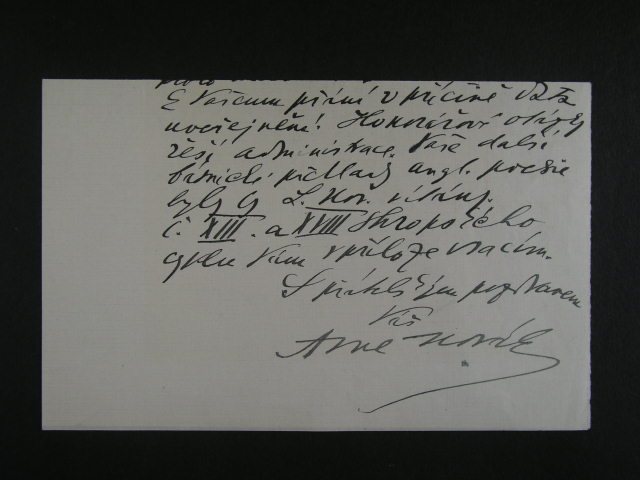 k Vašemu přání v příčině data
uveřejnění. Honorářové otázky
řeší administrace. Vaše další
básnické překlady angl. poesie
byly by L. Nov. vítány.
Č. XIII. a XVIII Shropského
cyklu Vám v příloze vracím.
S přátelským pozdravem
Váš
Arne Novák